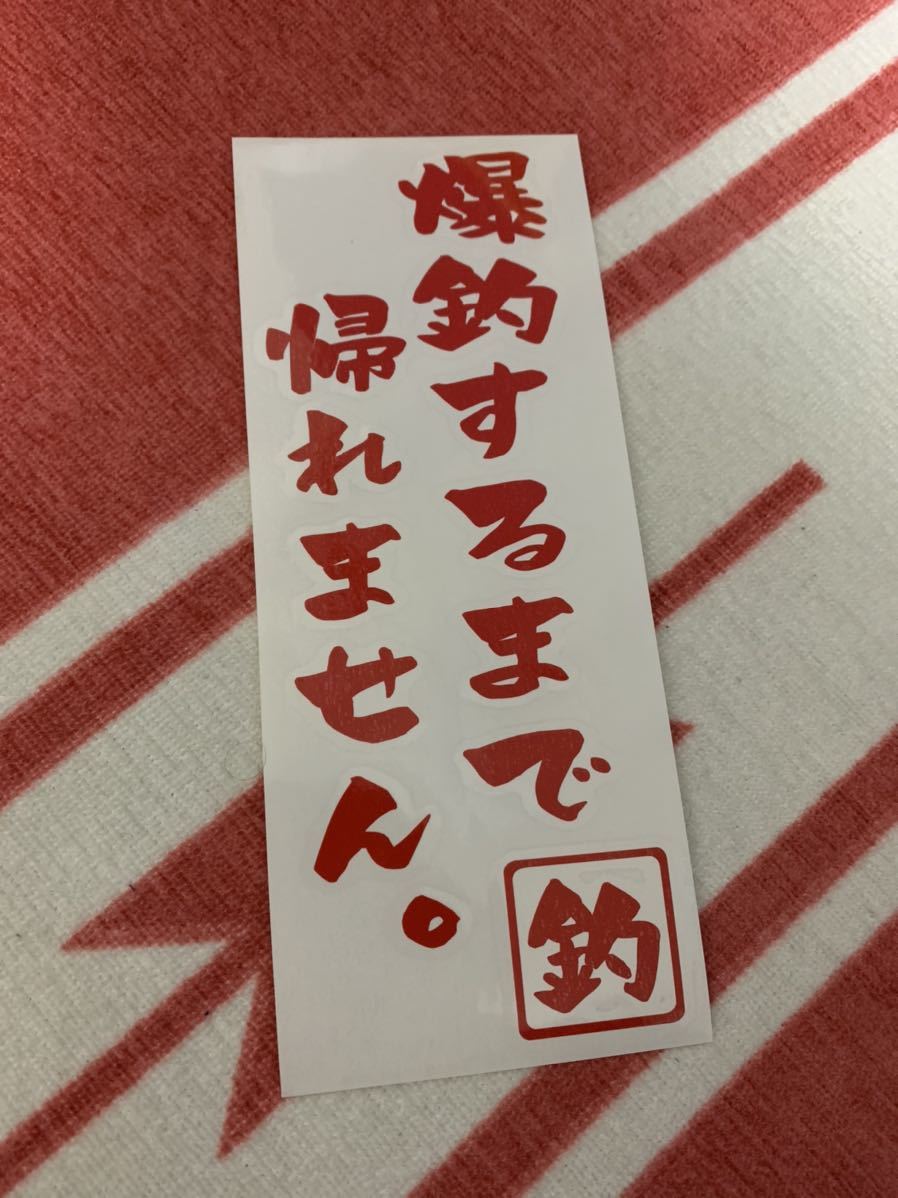 爆釣するまで
帰れません。
釣